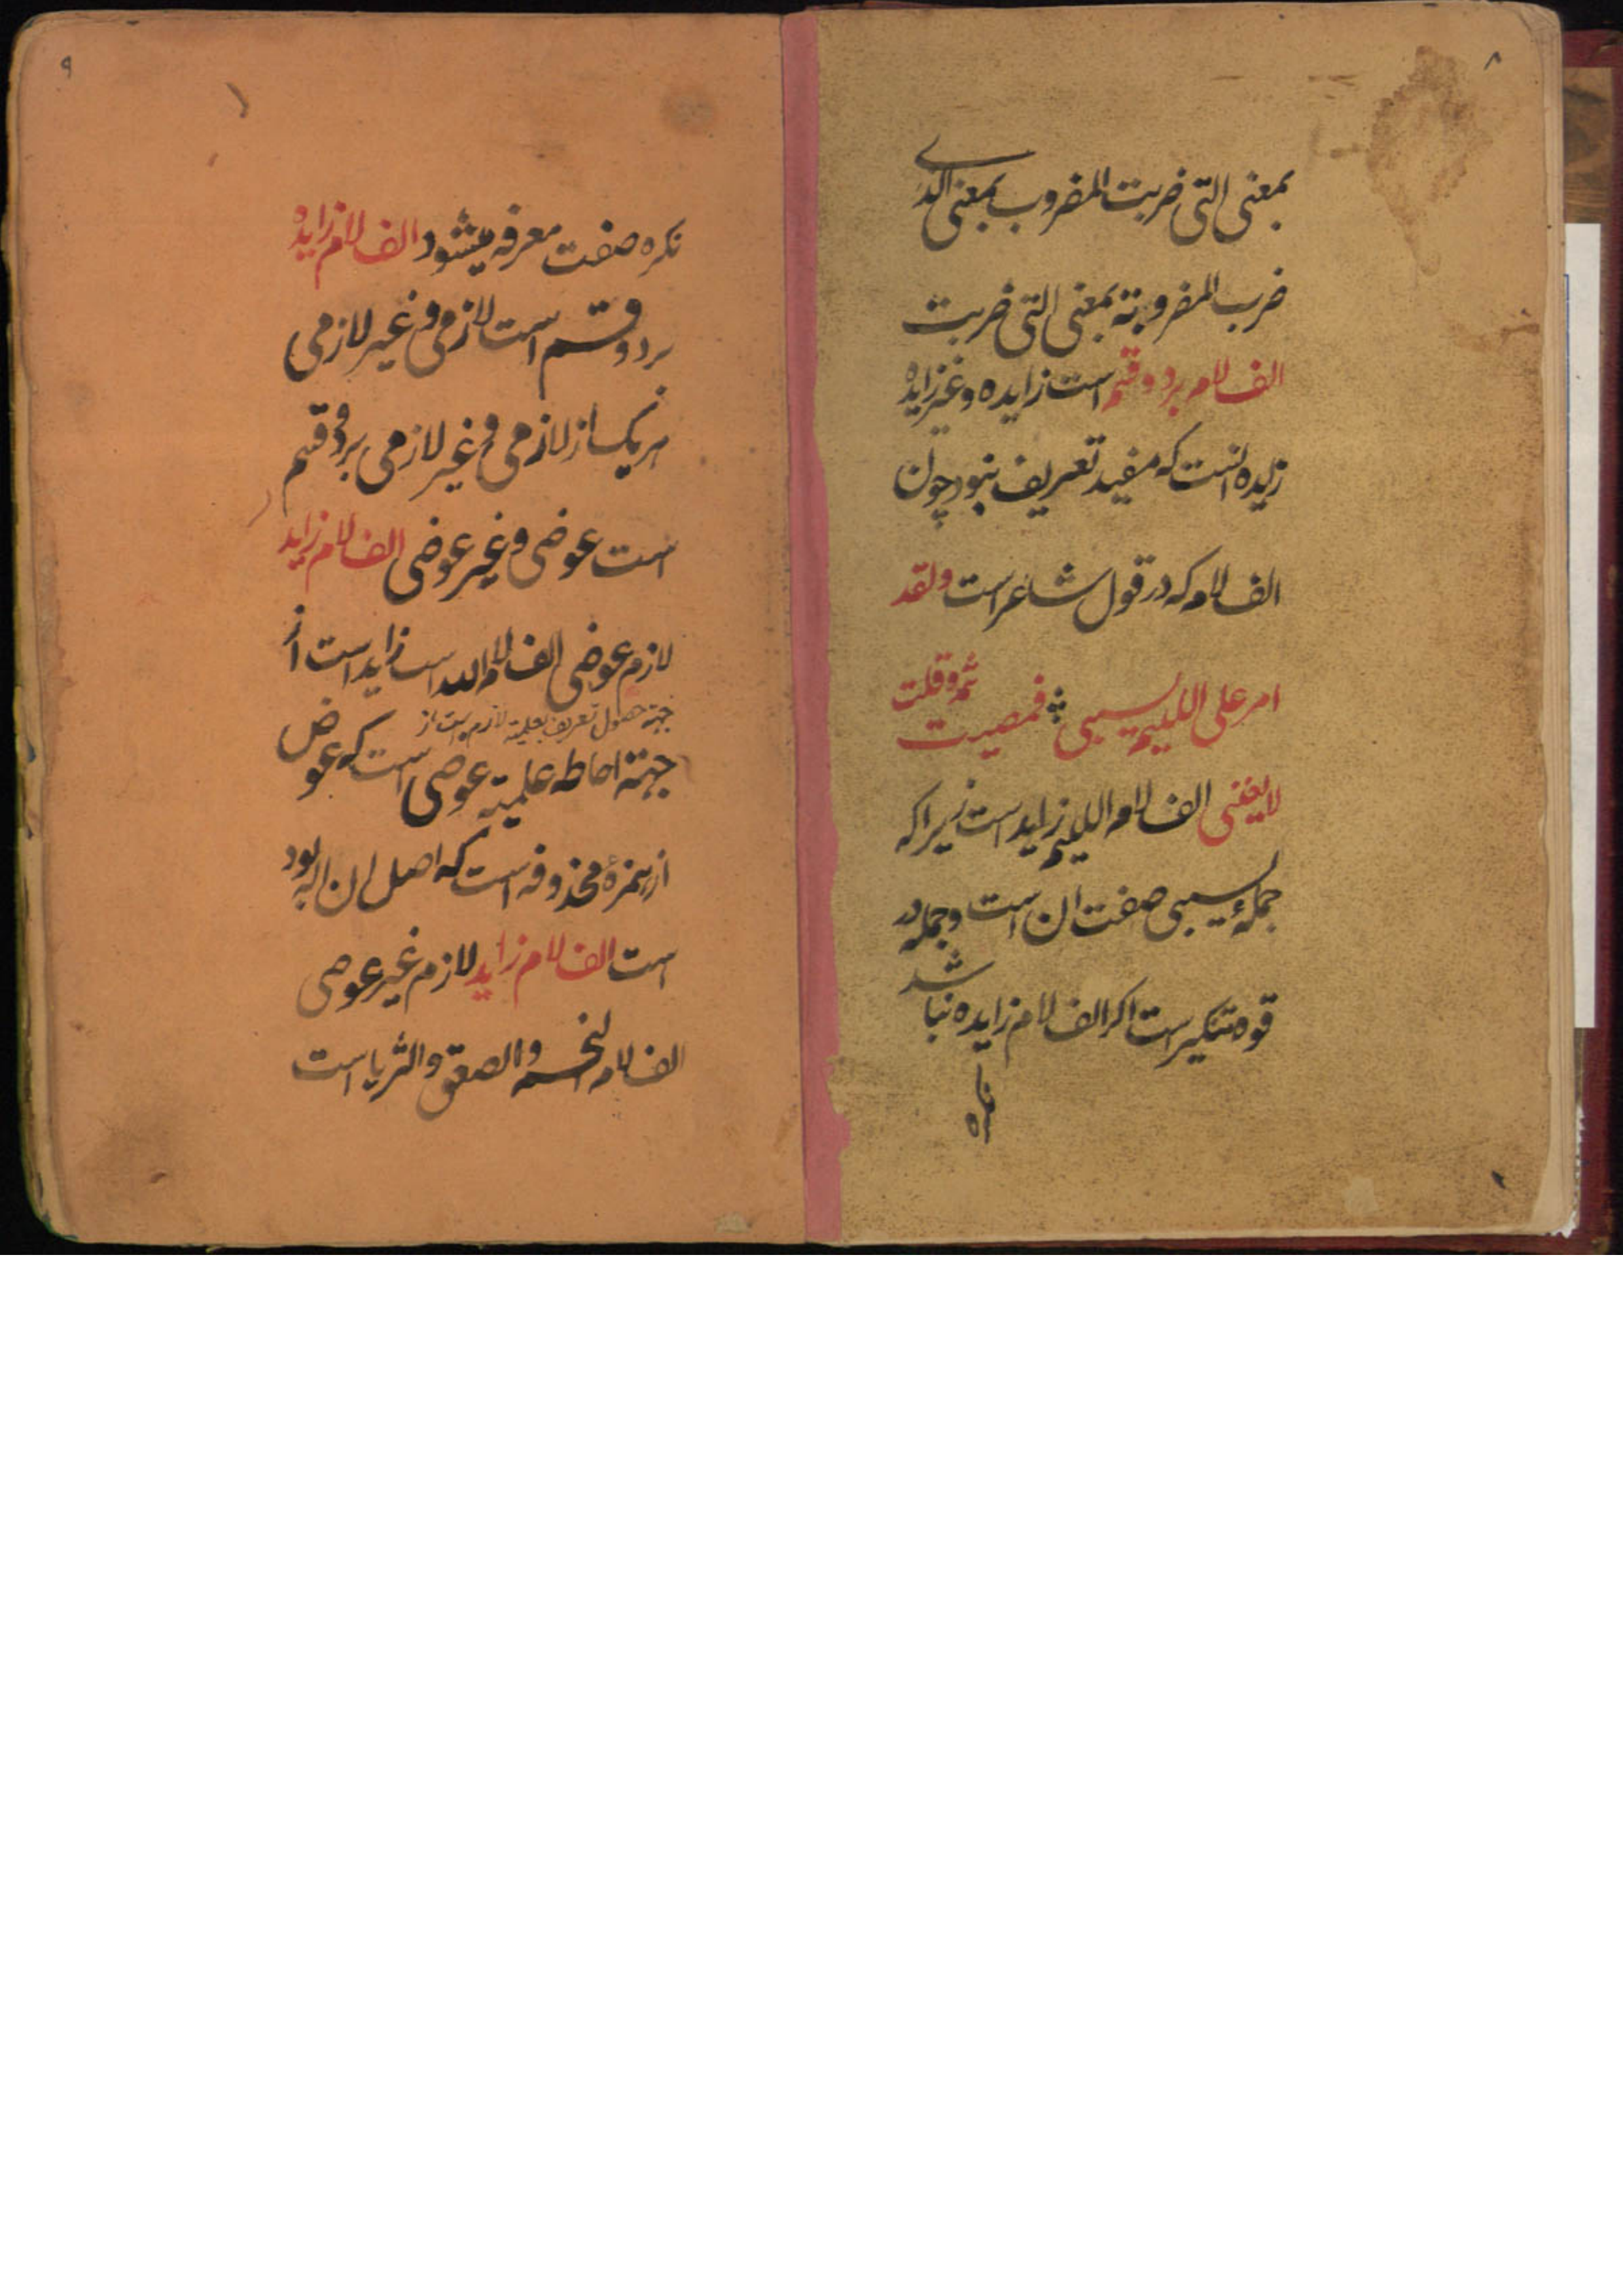 ۸
بمعنی التی ضربت المضروب بمعنی الذی
ضرب المضروبة بمعنی التی ضربت
الف لام بر دو قسم است زایده و غیر زایده
زایده انست که مفید تعریف نبود چون
الف لام که در قول شاعر است ولقد
امر علی اللئیم یسبنی فمضیت ثمة وقلت
لا یعنینی الف لام اللئیم زاید است زیرا که
جملهٔ یسبنی صفت ان است و جمله در
قوه تنکیر است اکر الف لام زایده نباشد
نکره
۹
نکره صفت معرفه میشود الف لام زایده
بر دو قسم است لازمی و غیر لازمی
هر یک از لازمی و غیر لازمی بر دو قسم
است عوضی و غیر عوضی الف لام زاید
لازم عوضی الف لام الله است زاید است از
جهة حصول تعریف بعلمیة لازم است از
جهتة احاطه علمیة عوضی است که عوض
از همزهٔ محذوفه است که اصل ان اله بود
است الف لام زاید لازم غیر عوضی
الف لام النجم و الصعق و الثریا است